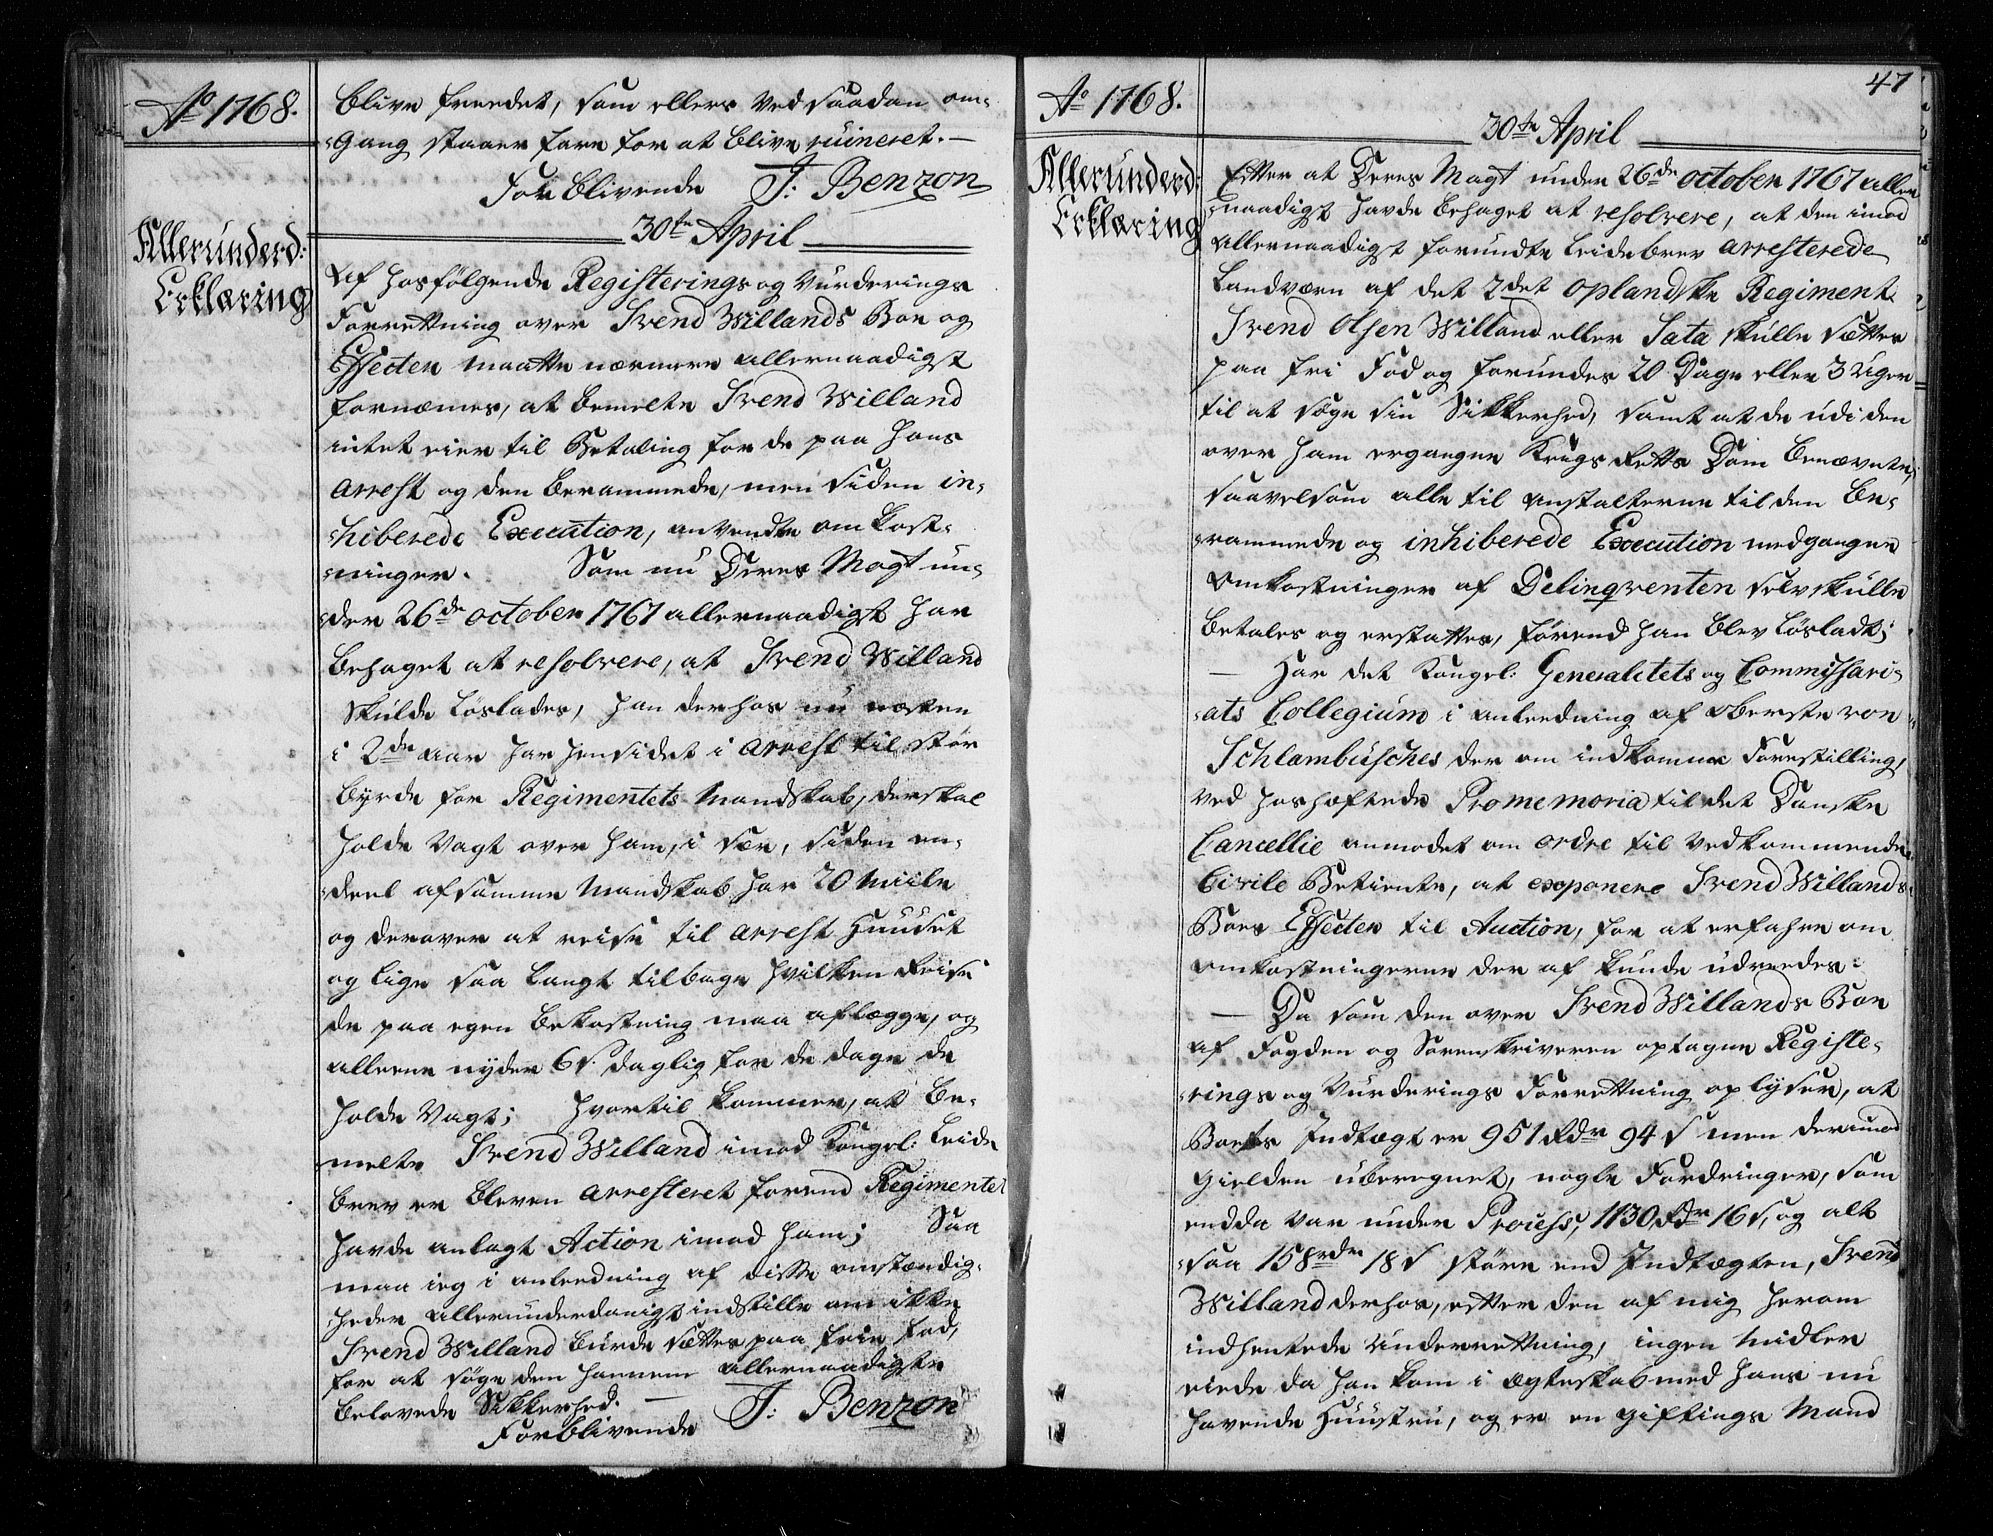 Ao 1768.
blive freedet, som ellers ved saadan om-
-gang staaer fare for at blive ruineret. —
Forblivende J: Benzon
30te April
Allerunderd:
Erklæring
Af hosfølgende Registerings og Vurderings
Forrettning over Svend Willands Boe og
Effecten maatte nærmere allernaadigst
fornemmes, at bemelte Svend Willand
intet eier til Betaling for de paa hans
arrest og den berammede, men siden in-
-hiberede Execution, anvendte omkost-
-ninger. Som nu Deres Mayt un-
-der 26de october 1767 allernaadigst har
behaget at resolvere, at Svend Willand
skulde løslades, han derhos nu næsten
i 2de aar har hensidet i arrest til stor
byrde for Regimentets Mandskab, der skal
holde Vagt over ham, i sær, siden en-
-deel af samme Mandskab har 20 Miile
og derover at reise til arrest Huuset
og lige saa langt tilbage hvilken Reise
de paa egen bekostning maa aflægge, og
alleene nyder 6 s. daglig for de dage de
holde Vagt; hvortil kommer, at be-
melte Svend Willand imod Kongel: Leide
brev er bleven arresteret forend Regimentet
havde anlagt Action imod ham; Saa
maa ieg i anleedning af disse omstændig-
-heder allerunderdanigst indstille om ikke
Svend Willand burde sættes paa frie fod,
for at søge den hannem allernaadigste
belovede Sikkerhed. —
Forblivende J: Benzon
47
Ao 1768.
30te April
Allerunderd:
Erklæring
Efter at Deres Mayt under 26de october 1767 aller
-naadigst havde behaget at resolvere, at den imod
allernaadigst forundte Leidebrev arresterede
Landværn af det 2det oplandske Regiment
Svend Olsen Willand eller Sata skulle sættes
paa fri Fod og forundes 20 Dage eller 3 Uger
til at søge sin Sikkerhed, samt at de udi den
over ham ergangne Krigs Retts Dom benævnte,
saavelsom alle til anstalterne til den be-
-rammede og inhiberede Execution medgangne
omkostninger af Delinqventen selv skulle
betales og erstattes, førend han blev løsladt;
— Har det Kongel: Generalitets og Commissari-
-ats Collegium i anleedning af oberste von
Schlambusches der om indkomne Forestilling,
ved hoshæftede Promemoria til det Danske
Cancellie anmodet om ordre til vedkommende
Civile Betiente, at exponere Svend Willands
Boes Effecter til Auction, for at erfahre om
omkostningerne der af kunde udreedes:
— Da som den over Svend Willands Boe
af Fogden og Sorenskriveren optagne Registe-
-rings og Vurderings Forrettning oplyser, at
Boets Indtægt er 951 Rdr 94 s men derimod
Gielden uberegnet, nogle Fordringer, som
endda var under Process, 1130, Rdr 16 s, og alt
-saa 158 rdr 18 s større end Indtægten, Svend
Willand derhos, efter den af mig herom
indhentede Underrettning, ingen Midler
eiede da han kom i Egteskab med hans nu
havende Huustru, og er en giftings Mand